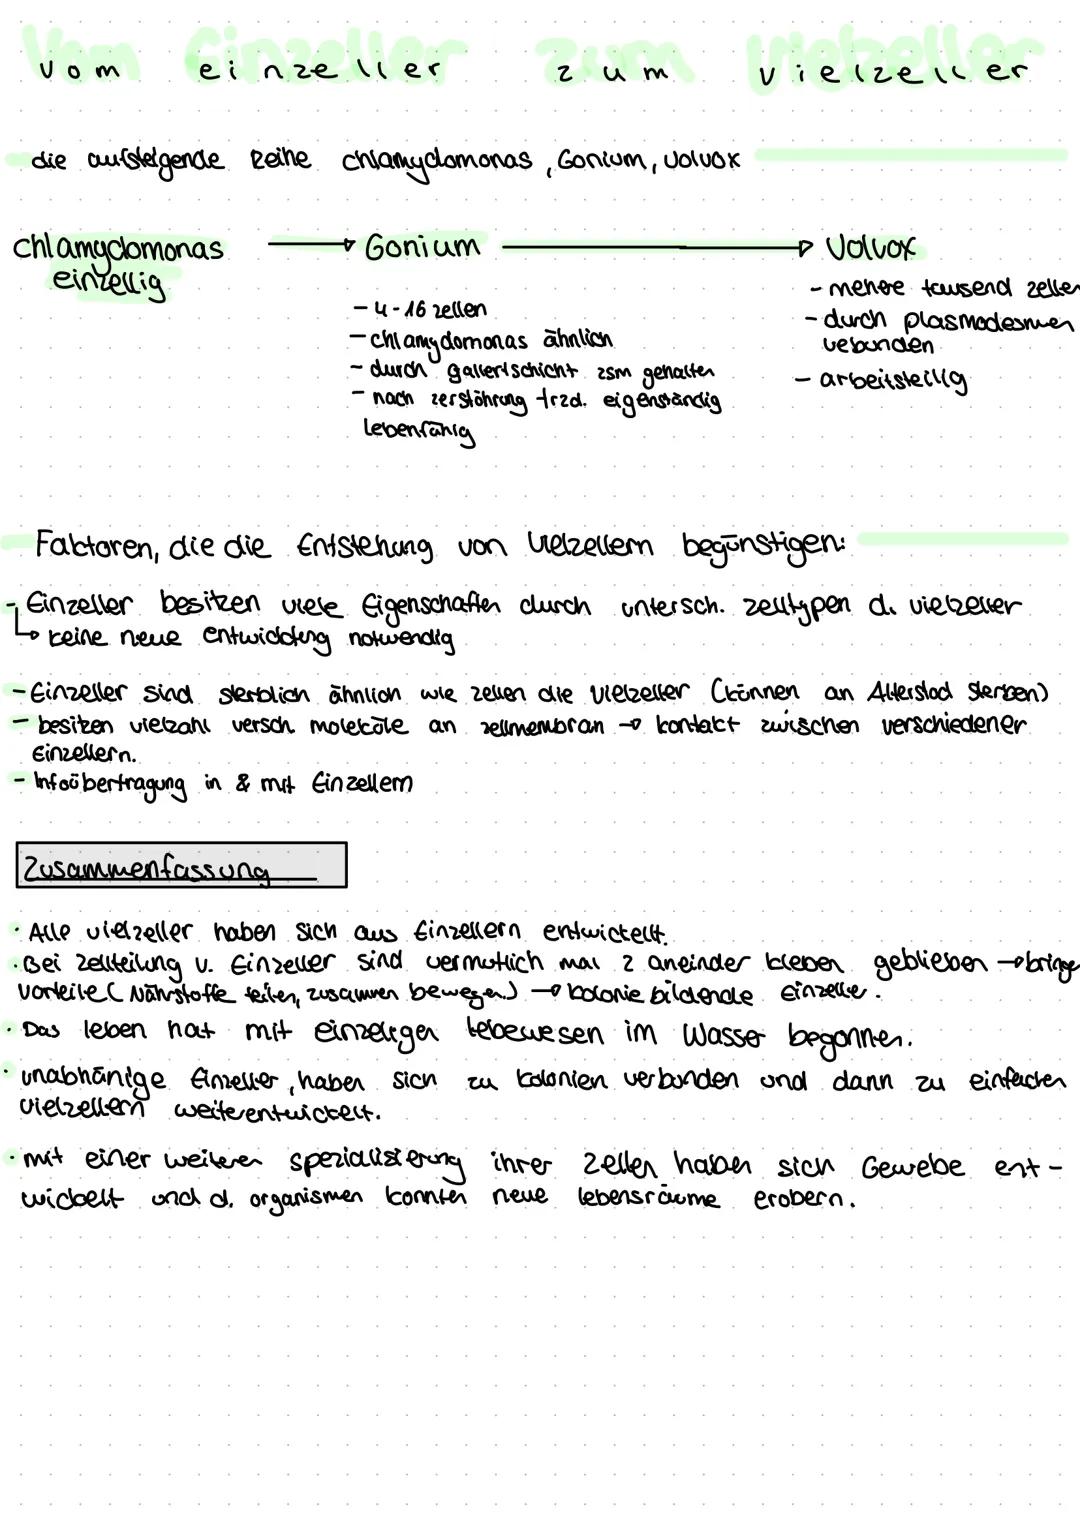 Vom Einzeller zum Vielzeller
vom einzeller zum vielzeller
die aufsteigende Reihe chlamydomonas, Gonium, Volvox
chlamydomonas → Gonium → Volvox
einzellig
- 4-16 zellen
- chlamydomonas ähnlich
- durch gallertschicht zsm gehalten
- nach zerstöhrung trzd. eigenständig
lebenfähig
- mehere tausend zellen
- durch plasmodesmen
vebunden
- arbeitsteilig
Faktoren, die die Entstehung von Vielzellern begünstigen:
- Einzeller besitzen viele Eigenschaften durch untersch. zelltypen d. vielzeller
↳ keine neue entwicklung notwendig
- Einzeller sind sterblich ähnlich wie zellen die Vielzeller (können an Alterstod sterben)
- besitzen vielzahl versch. moleküle an zellmembran → kontakt zwischen verschiedener
Einzellern.
- Infoübertragung in & mit Einzellern
Zusammenfassung
· Alle vielzeller haben sich aus Einzellern entwickelt.
· Bei zellteilung v. Einzeller sind vermutlich mal 2 aneinder kleben geblieben → bringe
vorteile ( Nährstoffe teilen, zusammen bewegen.) → kolonie bildende Einzeller.
· Das leben hat mit einzeligen lebewesen im Wasser begonnen.
· unabhänige Einzeller, haben sich zu kolonien verbunden und dann zu einfachen
vielzellern weiterentwickelt.
· mit einer weiteren spezialisierung ihrer zellen haben sich Gewebe ent-
wickelt und d. organismen konnten neue lebensräume erobern.